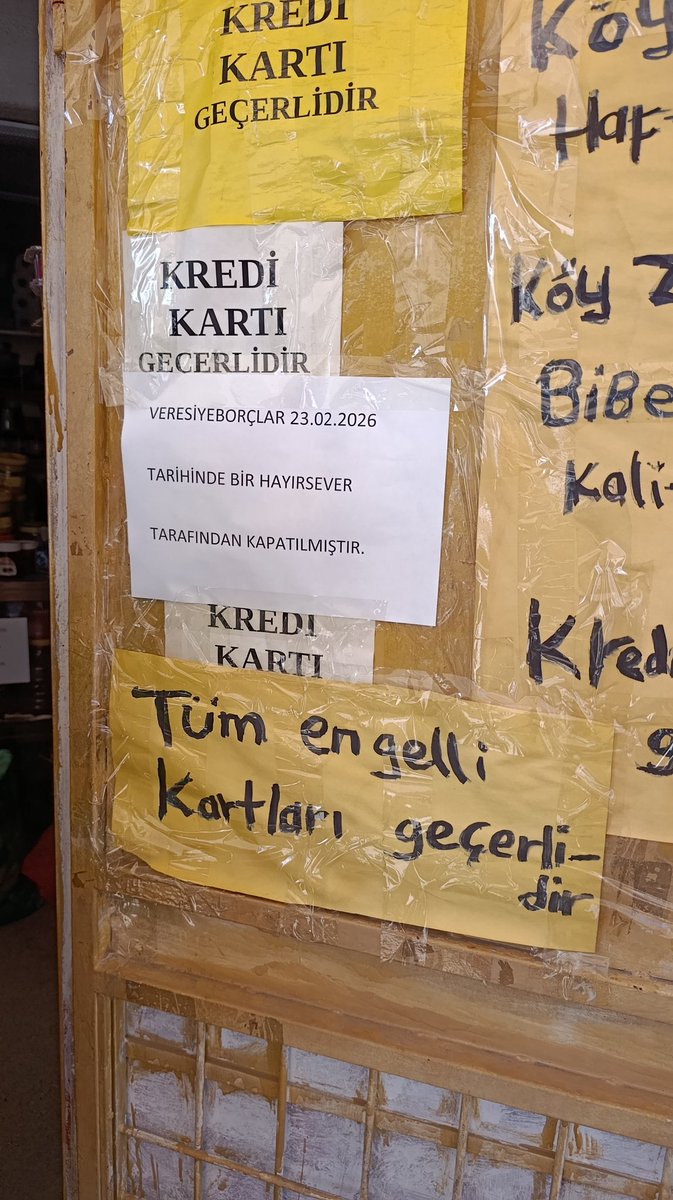 KREDİ
KARTI
GEÇERLİDİR
KREDİ
KARTI
GECERLİDİR
VERESİYEBORÇLAR 23.02.2026
TARİHİNDE BİR HAYIRSEVER
TARAFINDAN KAPATILMIŞTIR.
KREDİ
KARTI
Tüm engelli
Kartları geçerli-
dir
Köy
Köy